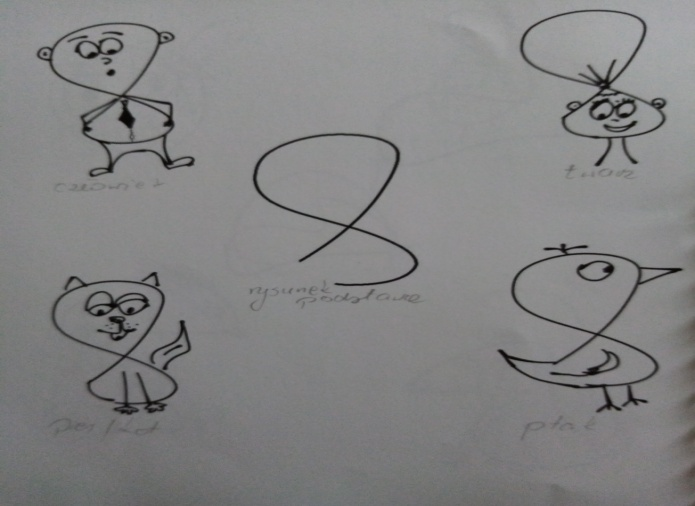 człowiek
twarz
rysunek
podstawa
pies/kot
ptak